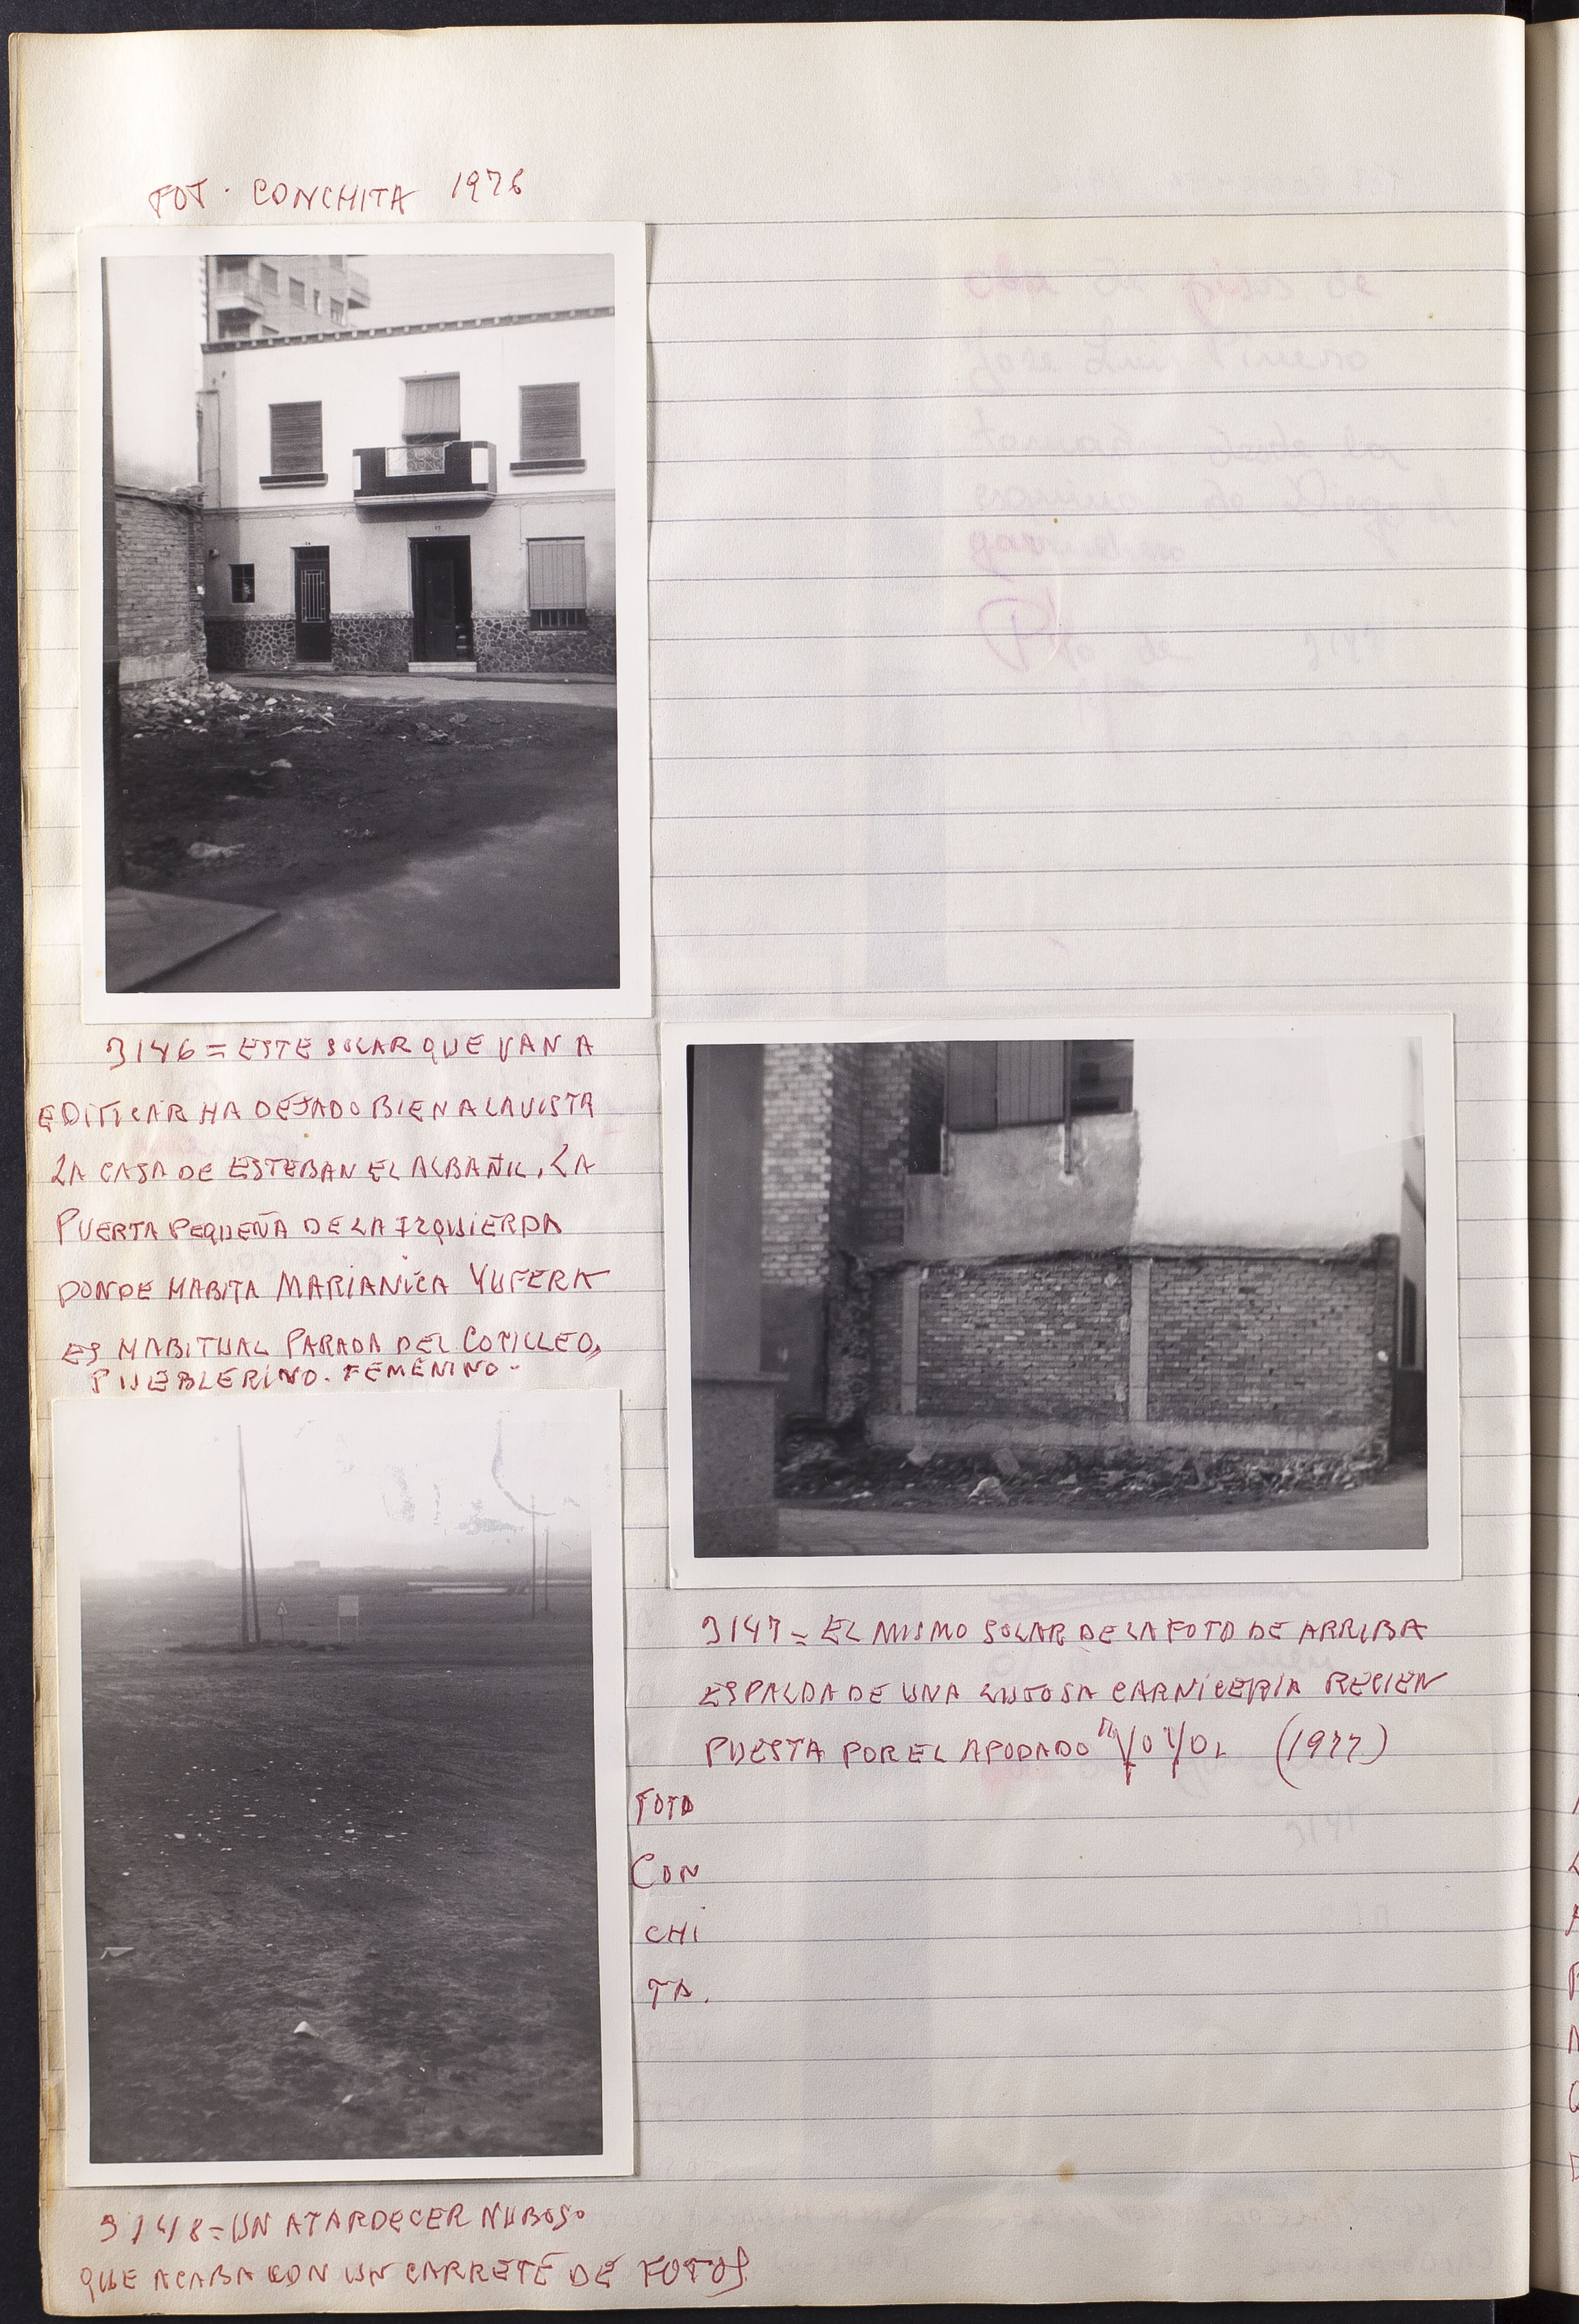 FOT. CONCHITA 1976
3146 = ESTE SOLAR QUE VAN A
EDIFICAR HA DEJADO BIEN A LA VISTA
LA CASA DE ESTEBAN EL ALBAÑIL. LA
PUERTA PEQUEÑA DE LA IZQUIERDA
DONDE HABITA MARIANICA YUFERA
ES HABITUAL PARADA DEL COTILLEO,
PUEBLERINO. FEMENINO.
3147 = EL MISMO SOLAR DE LA FOTO DE ARRIBA
ESPALDA DE UNA LUJOSA CARNICERIA RECIEN
PUESTA POR EL APODADO "YOYO. (1977)
FOTO
CON
CHI
TA.
3148 = UN ATARDECER NUBOSO
QUE ACABA CON UN CARRETE DE FOTOS